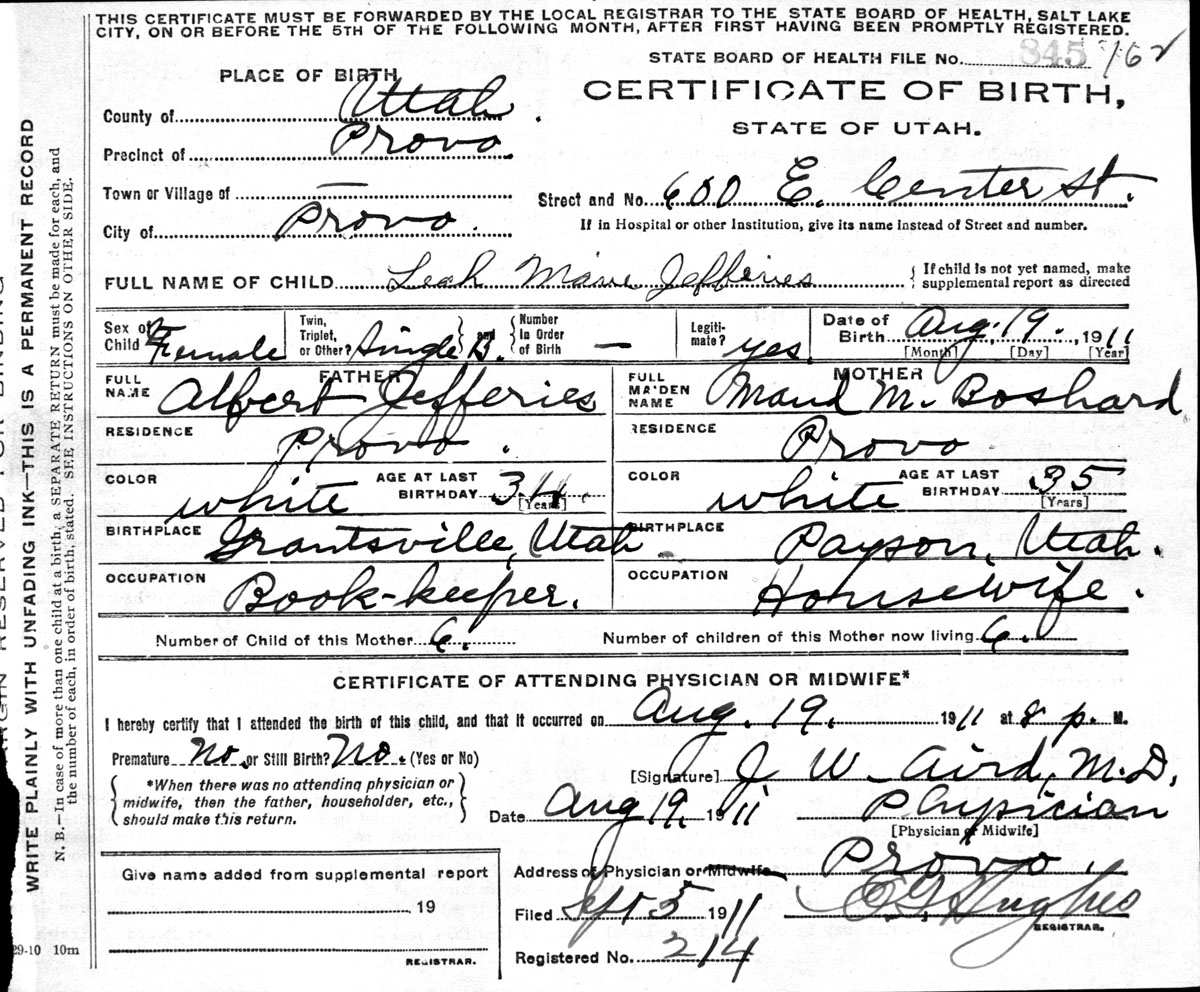 THIS CERTIFICATE MUST BE FORWARDED BY THE LOCAL REGISTRAR TO THE STATE BOARD OF HEALTH, SALT LAKE
CITY, ON OR BEFORE THE 5TH OF THE FOLLOWING MONTH, AFTER FIRST HAVING BEEN PROMPTLY REGISTERED.
STATE BOARD OF HEALTH FILE No. 845 762
PLACE OF BIRTH
CERTIFICATE OF BIRTH,
STATE OF UTAH.
County of Utah.
Precinct of Provo
Town or Village of —
Street and No. 600 E. Center St.
City of Provo.
If in Hospital or other Institution, give its name instead of Street and number.
FULL NAME OF CHILD Leah Jefferies
If child is not yet named, make
supplemental report as directed
Sex of Child Female
Twin, Triplet, or Other? Single B. and Number in Order of Birth —
Legitimate? yes.
Date of Birth Aug. 19. 1911
[Month] [Day] [Year]
FATHER
MOTHER
FULL NAME Albert Jefferies
FULL MAIDEN NAME Maud M. Boshard
RESIDENCE Provo.
RESIDENCE Provo
COLOR white AGE AT LAST BIRTHDAY 34. [Years]
COLOR white AGE AT LAST BIRTHDAY 35 [Years]
BIRTHPLACE Grantsville, Utah
BIRTHPLACE Payson, Utah.
OCCUPATION Book-keeper.
OCCUPATION Housewife.
Number of Child of this Mother 6.
Number of children of this Mother now living 6.
CERTIFICATE OF ATTENDING PHYSICIAN OR MIDWIFE*
I hereby certify that I attended the birth of this child, and that it occurred on Aug. 19. 1911 at 8 p. M.
Premature No or Still Birth? No. (Yes or No)
*When there was no attending physician or
midwife, then the father, householder, etc.,
should make this return.
[Signature] J. W. Aird, M.D.
Date Aug 19. 1911 Physician
[Physician or Midwife]
Address of Physician or Midwife Provo.
Filed Sept 5 1911 Hughes
REGISTRAR.
Registered No. 214
Give name added from supplemental report
19
REGISTRAR.
29-10 10m
RESERVED FOR BINDING
WRITE PLAINLY WITH UNFADING INK—THIS IS A PERMANENT RECORD
N. B.—In case of more than one child at a birth, a SEPARATE RETURN must be made for each, and
the number of each, in order of birth, stated. SEE INSTRUCTIONS ON OTHER SIDE.